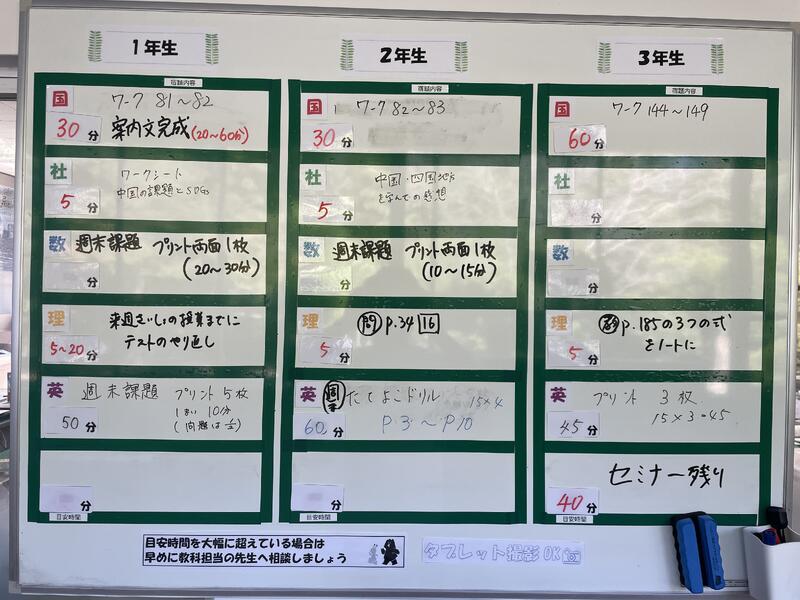 1年生
宿題内容
国
ワーク 81～82
30分
案内文完成(20～60分)
社
ワークシート
5分
中国の課題とSDGs
数
週末課題 プリント両面1枚
(20～30分)
分
理
来週さいしょの授業までに
テストのやり直し
5～20分
英
週末課題 プリント5枚
1まい 10分
50分
(問題は½)
分
目安時間
2年生
宿題内容
国
ワーク 82～83
30分
社
中国・四国地方
を学んでの感想
5分
数
週末課題 プリント両面1枚
(10～15分)
分
理
問 p.34 16
5分
英
週末 たてよこドリル 15×4
P.3～P10
60分
分
目安時間
3年生
宿題内容
国
ワーク 144～149
60分
社
分
数
分
理
p.185の3つの式
をノートに
5分
英
プリント 3枚
15×3=45
45分
セミナー残り
40分
目安時間
目安時間を大幅に超えている場合は
早めに教科担当の先生へ相談しましょう
タブレット撮影OK